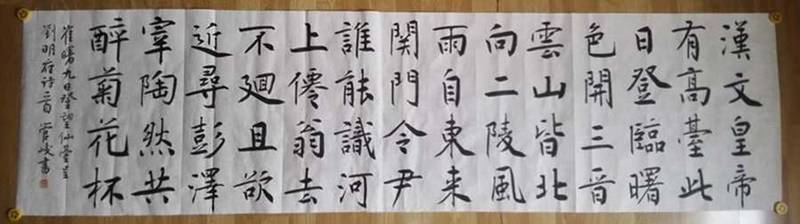 漢文皇帝
有高臺此
日登臨曙
色開三晉
雲山皆北
向二陵風
雨自東来
関門令尹
誰能識河
上僊翁去
不廻且欲
近尋彭澤
宰陶然共
醉菊花杯
崔曙九日登望仙臺呈
劉明府诗一首 管峻書